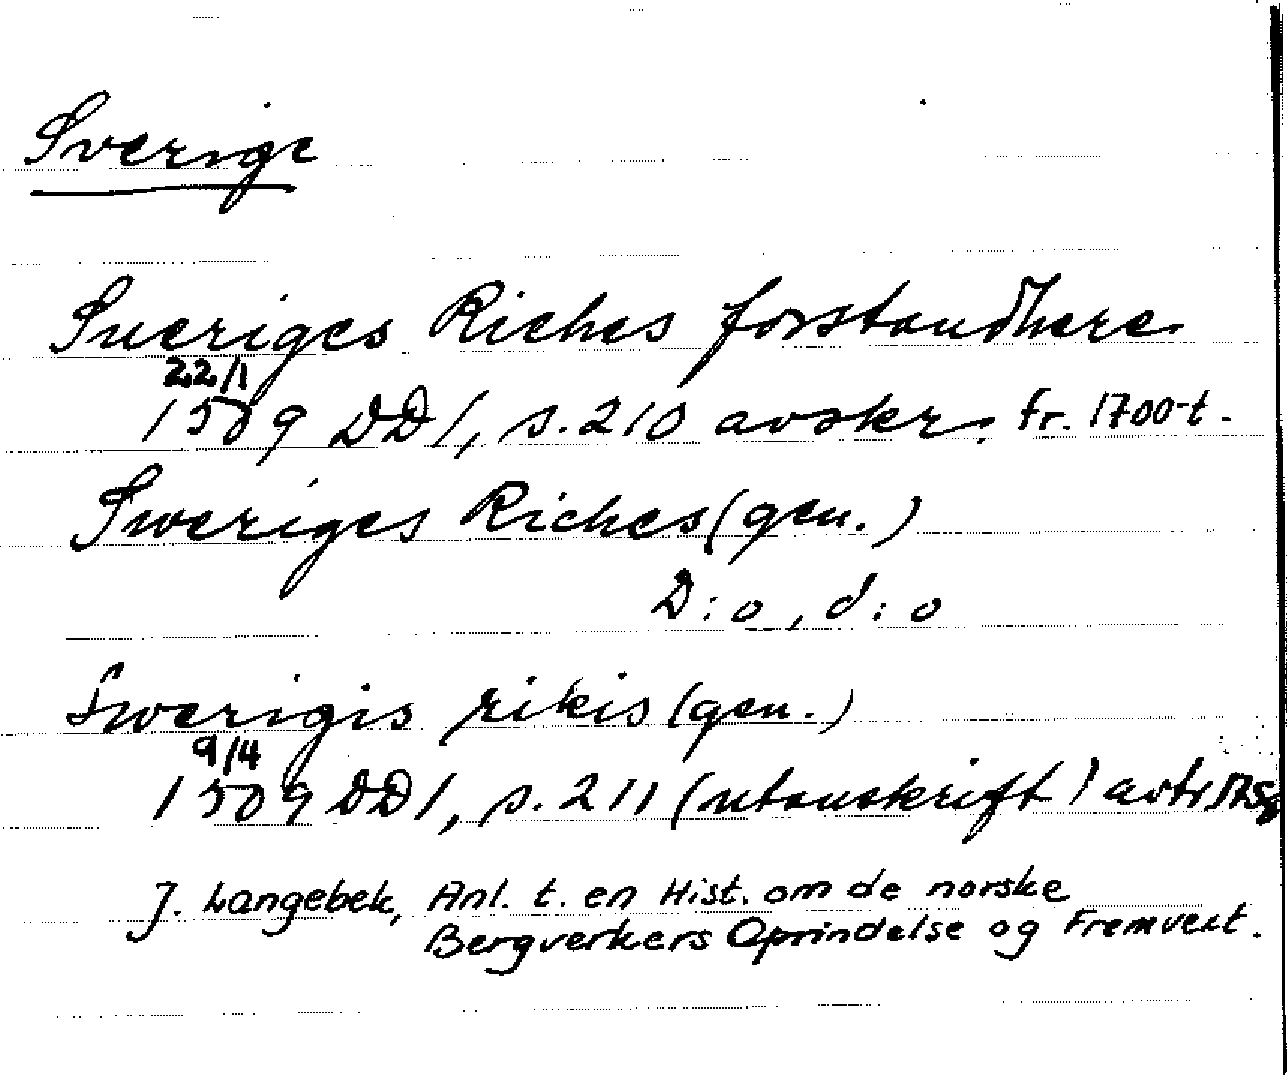 Sverige
Sueriges Riches forstandhere
22/1
1509 DD1, s. 210 avskr. fr. 1700-t.
Sweriges Riches (gen.)
D:o, d:o
Swerigis rikis (gen.)
9/4
1509 DD1, s. 211 (utanskrift) avtr 1758
J. Langebek, Anl. t. en Hist. om de norske
Bergverkers Oprindelse og Fremvext.